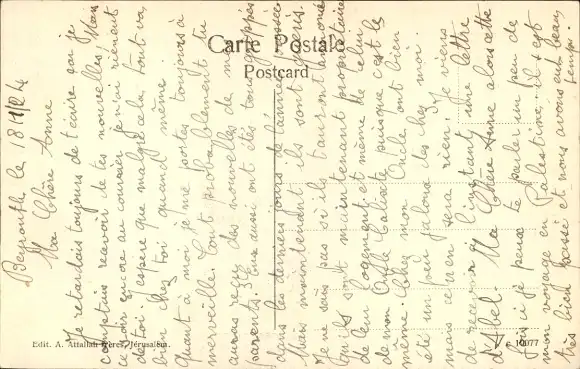 Carte Postale
Postcard
Beyrouth le 18/12/24
Ma Chère Anne
Je retardais toujours de t'écrire car je
comptais recevoir de tes nouvelles! Mais
ce soir encore au courrier je n'ai rien eu
de toi. J'espère que malgré cela, tout va
bien chez toi quand même.
Quant à moi je me portes toujours à
merveille. Tout probablement tu
auras reçu des nouvelles de mes
parents. Eux aussi ont étés tous grippés
dans les derniers jours de l'année passée
Mais maintenant ils sont guéris.
Je ne sais pas si ils t'auront annoncé
qu'ils sont maintenant propriétaire
de leur logement et même de celui
de mon Oncle Calixte puisque c'est le
même. Chez mon Oncle ont bien
été un peu jaloux des chez moi
mais ce n'en sera rien. Je viens
de recevoir à l'instant une lettre
d'Abel. Ma Chère Anne alors cette
fois ci je peux te parler un peu de
mon voyage en Palestine, il s'est
très bien passé et nous avons eu beau
temps.
Edit. A. Attallah frères, Jérusalem.
10077